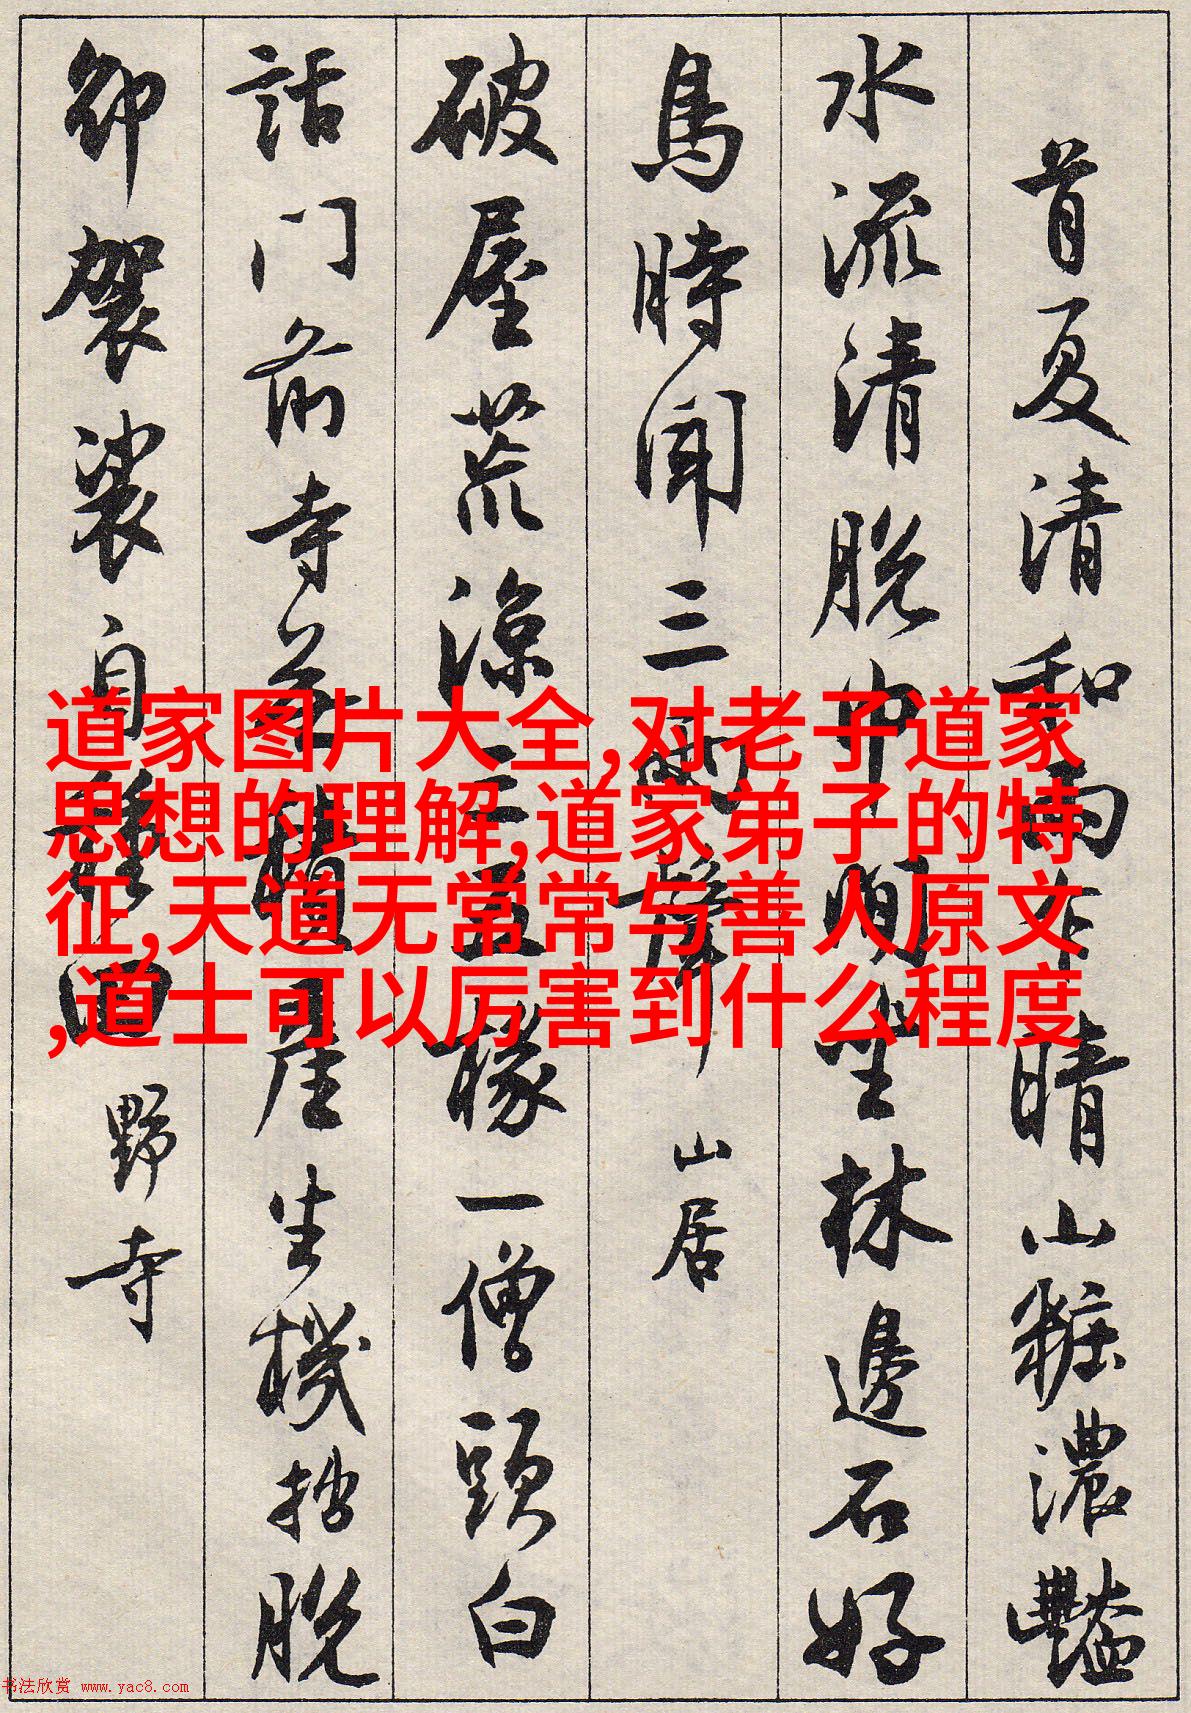 首夏清和雨乍晴山粧濃豔
水流清脱巾閒坐林邊石好
鳥時聞三兩聲 山居
破屋荒涼三五椽一僧頭白
話门前寺生機拙脱
卻袈裟自種田 野寺
道家图片大全,对老子道家
思想的理解,道家弟子的特
征,天道无常常与善人原文
,道士可以厉害到什么程度
书法欣赏 www.yac8.com